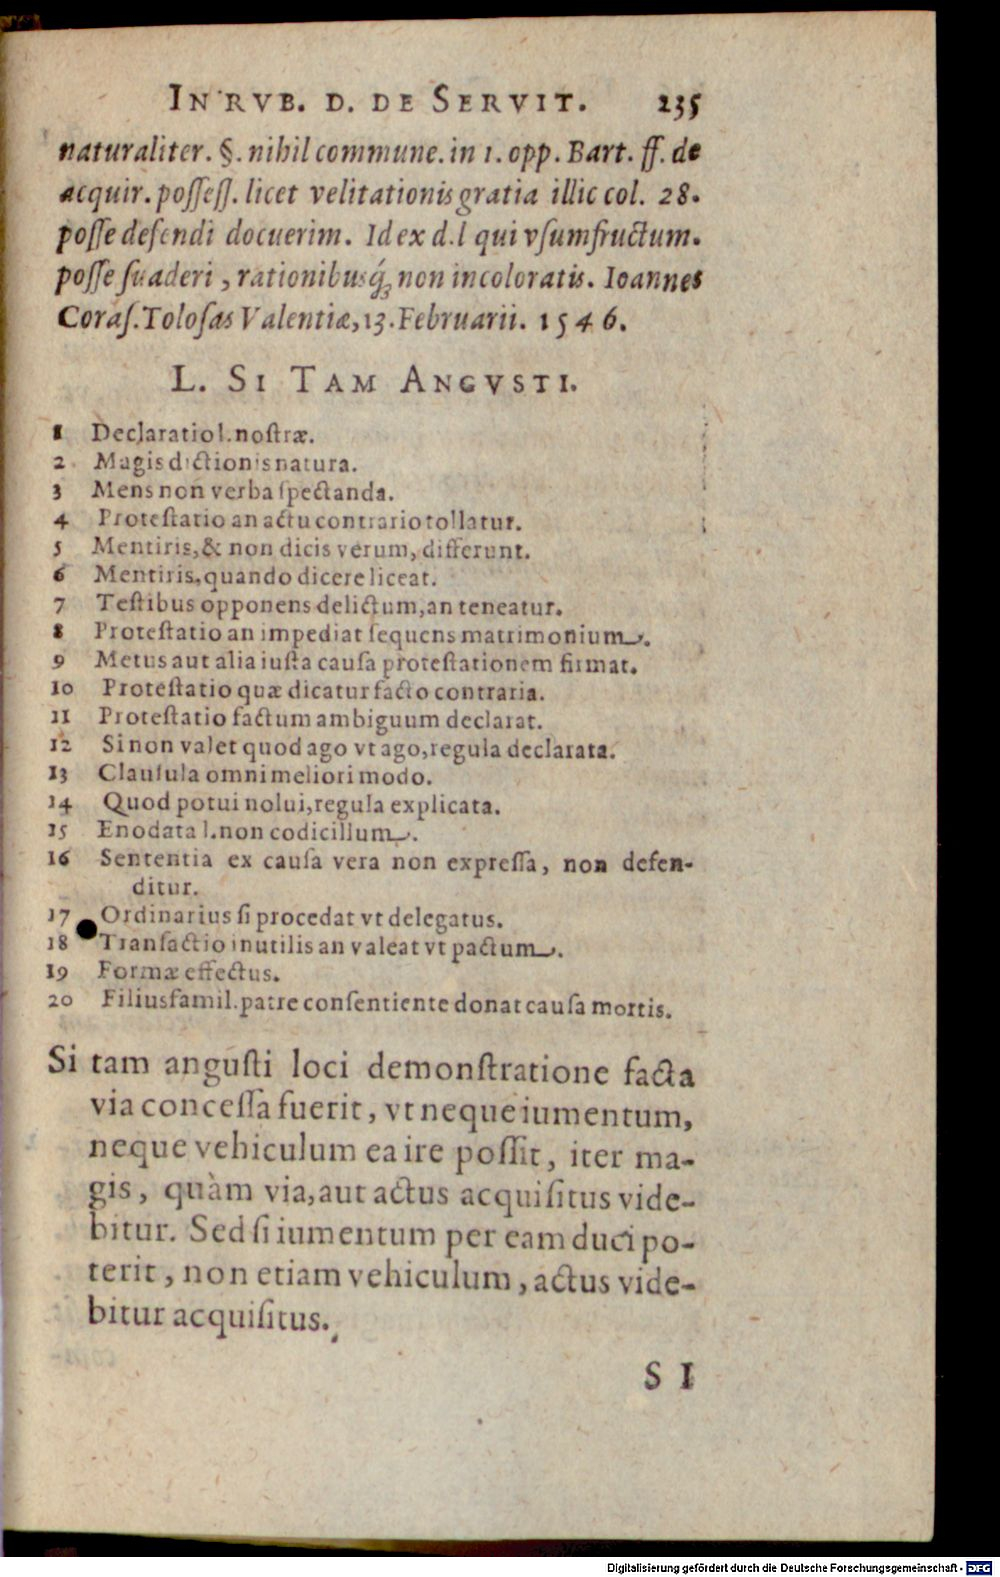 IN RVB. D. DE SERVIT. 235
naturaliter. §. nihil commune. in 1. opp. Bart. ff. de
acquir. poſſeſſ. licet velitationis gratia illic col. 28.
poſſe defendi docuerim. Id ex d. l qui vſumfructum.
poſſe ſuaderi, rationibusq́ꝫ non incoloratis. Ioannes
Coraſ. Toloſas Valentiæ, 13. Februarii. 1546.
L. SI TAM ANGVSTI.
1 Declaratio l. noſtræ.
2 Magis dictionis natura.
3 Mens non verba ſpectanda.
4 Proteſtatio an actu contrario tollatur.
5 Mentiris, & non dicis verum, differunt.
6 Mentiris, quando dicere liceat.
7 Teſtibus opponens delictum, an teneatur.
8 Proteſtatio an impediat ſequens matrimonium.
9 Metus aut alia iuſta cauſa proteſtationem firmat.
10 Proteſtatio quæ dicatur facto contraria.
11 Proteſtatio factum ambiguum declarat.
12 Si non valet quod ago vt ago, regula declarata.
13 Clauſula omni meliori modo.
14 Quod potui nolui, regula explicata.
15 Enodata l. non codicillum.
16 Sententia ex cauſa vera non expreſſa, non defen-
ditur.
17 Ordinarius ſi procedat vt delegatus.
18 Tranſactio inutilis an valeat vt pactum.
19 Formæ effectus.
20 Filiusfamil. patre conſentiente donat cauſa mortis.
Si tam anguſti loci demonſtratione facta
via conceſſa fuerit, vt neque iumentum,
neque vehiculum ea ire poſſit, iter ma-
gis, quàm via, aut actus acquiſitus vide-
bitur. Sed ſi iumentum per eam duci po-
terit, non etiam vehiculum, actus vide-
bitur acquiſitus.
SI
Digitalisierung gefördert durch die Deutsche Forschungsgemeinschaft - DFG